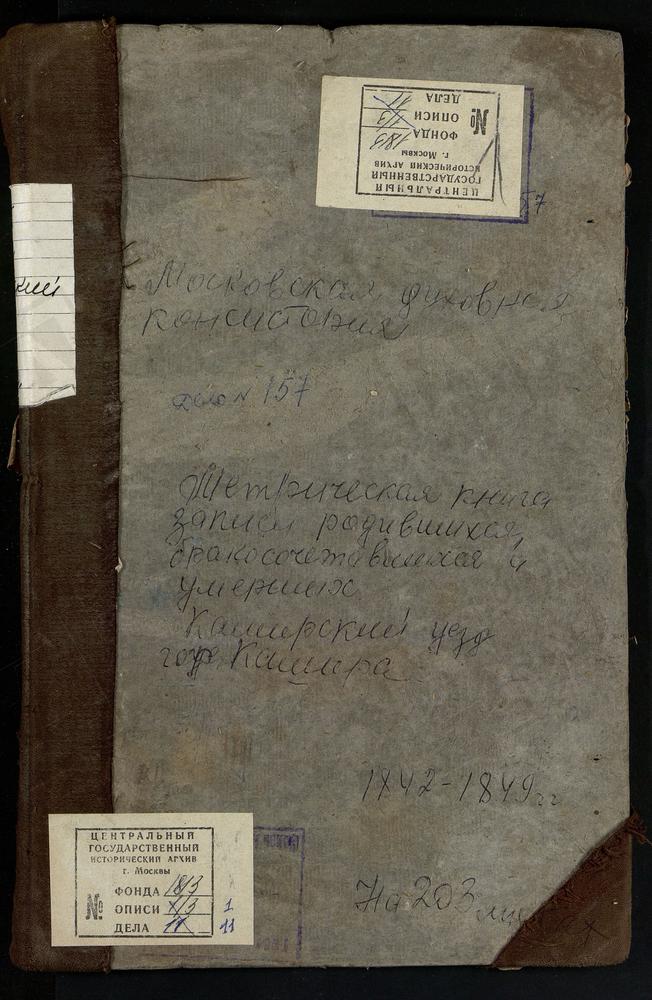 ЦЕНТРАЛЬНЫЙ
ГОСУДАРСТВЕННЫЙ
ИСТОРИЧЕСКИЙ АРХИВ
г. Москвы
№
ФОНДА
ОПИСИ
ДЕЛА
57
кий
Московская духовная
консистория
дело № 157
Метрическая книга
записи родившихся,
бракосочетавшихся и
умерших
Каширский уезд
гор. Кашира
1842-1849 гг
На 203
ЦЕНТРАЛЬНЫЙ
ГОСУДАРСТВЕННЫЙ
ИСТОРИЧЕСКИЙ АРХИВ
г. Москвы
№
ФОНДА
ОПИСИ 1
ДЕЛА 11